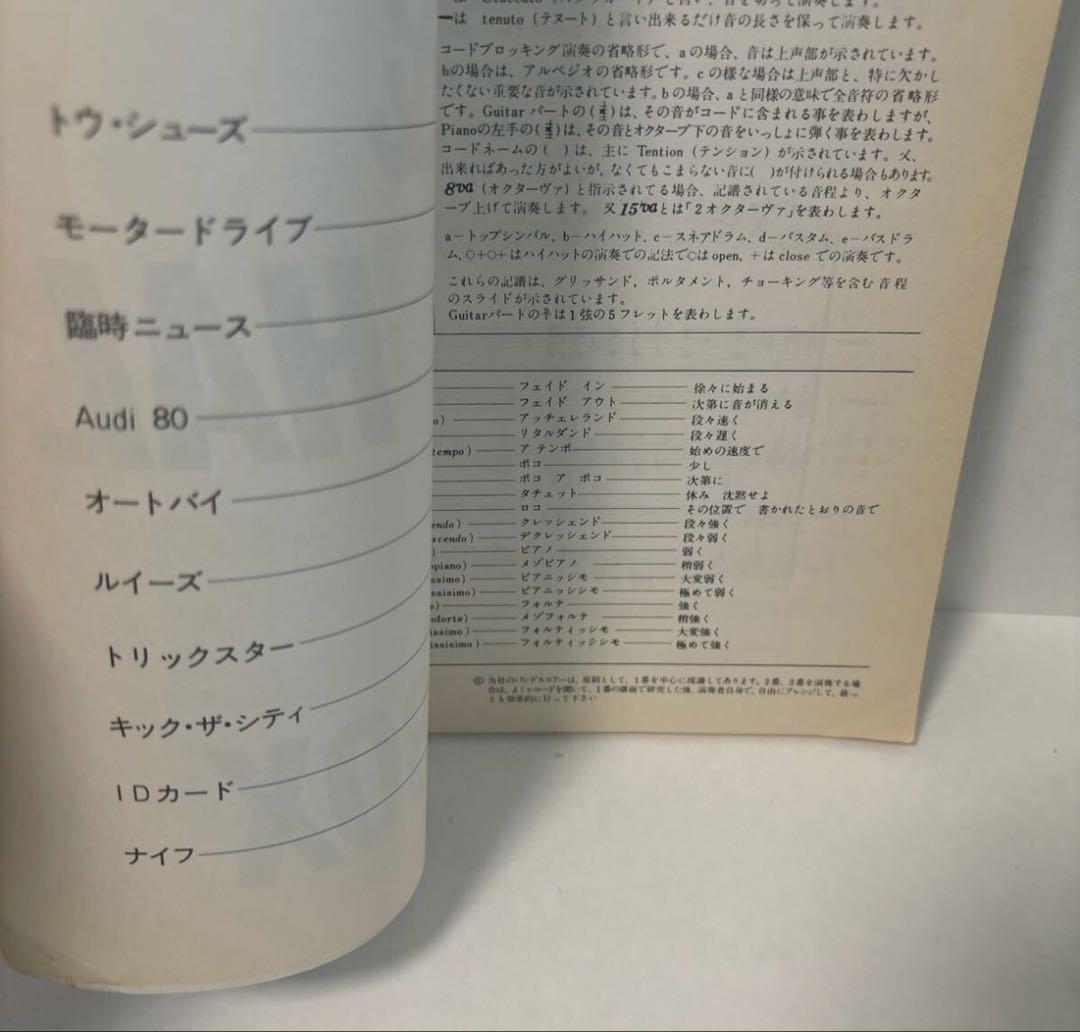 トウ・シューズ
モータードライブ
臨時ニュース
Audi 80
オートバイ
ルイーズ
トリックスター
キック・ザ・シティ
IDカード
ナイフ
ーは tenuto (テヌート) と言い出来るだけ音の長さを保って演奏します。
コードブロッキング演奏の省略形で、aの場合、音は上声部が示されています。
bの場合は、アルペジオの省略形です。cの様な場合は上声部と、特に欠かし
たくない重要な音が示されています。bの場合、aと同様の意味で全音符の省略形
です。Guitar パートの( )は、その音がコードに含まれる事を表わしますが、
Pianoの左手の( )は、その音とオクターブ下の音をいっしょに弾く事を表わします。
コードネームの ( ) は、主に Tention (テンション) が示されています。又、
出来ればあった方がよいが、なくてもこまらない音に( )が付けられる場合もあります。
8va (オクターヴァ) と指示されてる場合、記譜されている音程より、オクタ
ーブ上げて演奏します。 又15vaとは「2オクターヴァ」を表わします。
a－トップシンバル、b－ハイハット、c－スネアドラム、d－バスタム、e－バスドラ
ム、○+○+はハイハットの演奏での記法で○は open, +は close での演奏です。
これらの記譜は、グリッサンド, ポルタメント, チョーキング等を含む音程
のスライドが示されています。
Guitarパートの は1弦の5フレットを表わします。
フェイド イン 徐々に始まる
フェイド アウト 次第に音が消える
o) アッチェレランド 段々速く
リタルダンド 段々遅く
tempo) ア テンポ 始めの速度で
ポコ 少し
ポコ ア ポコ 次第に
タチェット 休み 沈黙せよ
ロコ その位置で 書かれたとおりの音で
endo) クレッシェンド 段々強く
scendo) デクレッシェンド 段々弱く
) ピアノ 弱く
opiano) メゾピアノ 稍弱く
ssimo) ピアニッシモ 大変弱く
ssisimo) ピアニッシシモ 極めて弱く
e) フォルテ 強く
oforte) メゾフォルテ 稍強く
issimo) フォルティッシモ 大変強く
issisimo) フォルティッシシモ 極めて強く
当社のバンドスコアーは、原則として、1番を中心に採譜してあります。2番、3番を演奏する場
合は、よくレコードを聞いて、1番の譜面で研究した後、演奏者自身で、自由にアレンジして、最っ
とも効果的に行って下さい